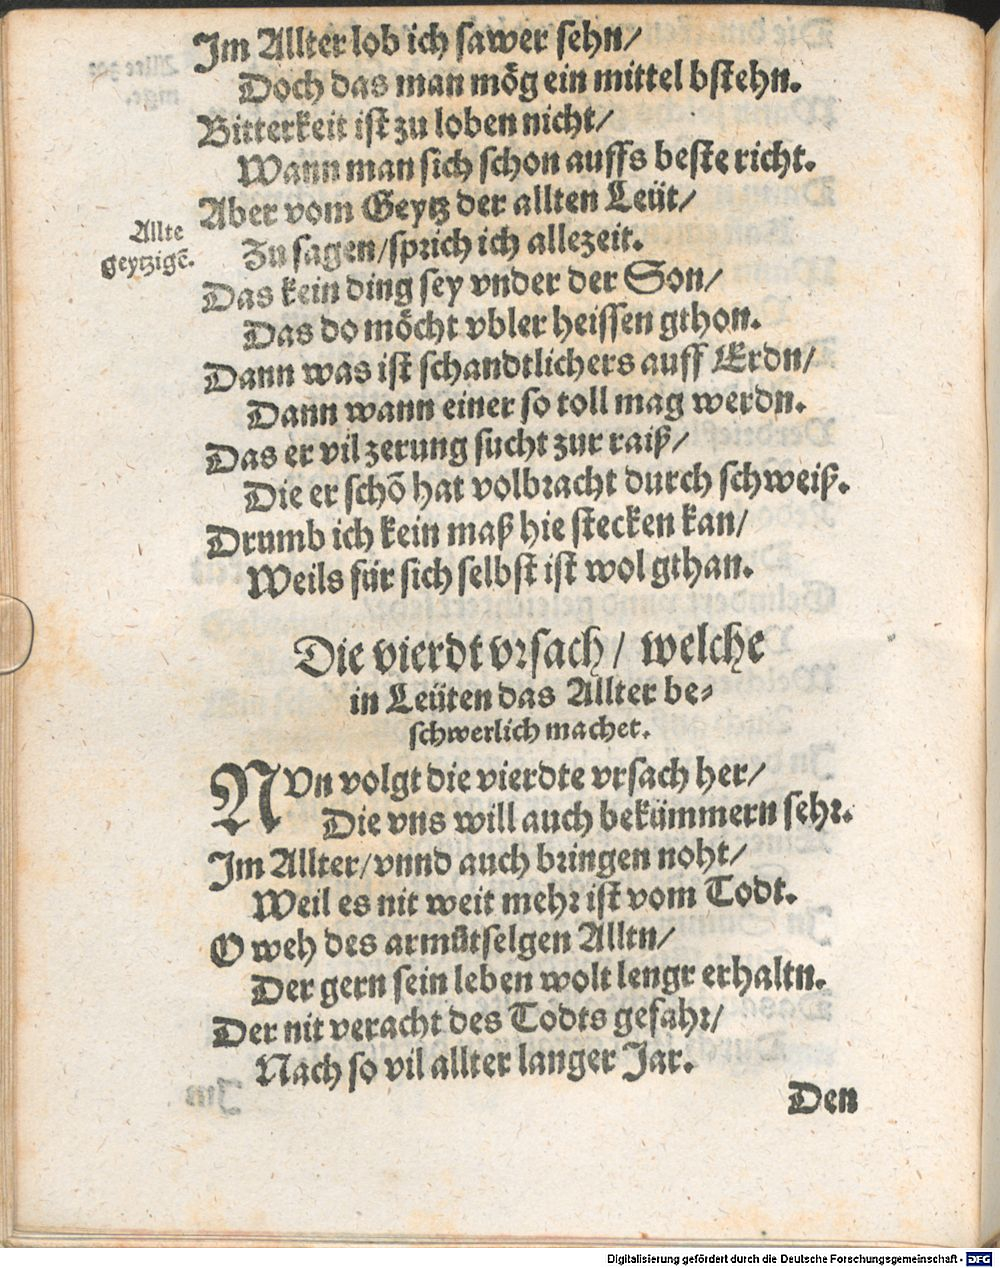 Im Allter lob ich sawer sehn/
Doch das man mög ein mittel bstehn.
Bitterkeit ist zu loben nicht/
Wann man sich schon auffs beste richt.
Aber vom Geytz der allten Leüt/
Allte
geytzigē.
Zu sagen/sprich ich allezeit.
Das kein ding sey vnder der Son/
Das do möcht vbler heissen gthon.
Dann was ist schandtlichers auff Erdn/
Dann wann einer so toll mag werdn.
Das er vil zerung sucht zur raiß/
Die er schō hat volbracht durch schweiß.
Drumb ich kein maß hie stecken kan/
Weils für sich selbst ist wol gthan.
Die vierdt vrsach/ welche
in Leüten das Allter be-
schwerlich machet.
NVn volgt die vierdte vrsach her/
Die vns will auch bekümmern sehr.
Im Allter/vnnd auch bringen noht/
Weil es nit weit mehr ist vom Todt.
O weh des armütselgen Alltn/
Der gern sein leben wolt lengr erhaltn.
Der nit veracht des Todts gefahr/
Nach so vil allter langer Jar.
Den
Digitalisierung gefördert durch die Deutsche Forschungsgemeinschaft - DFG